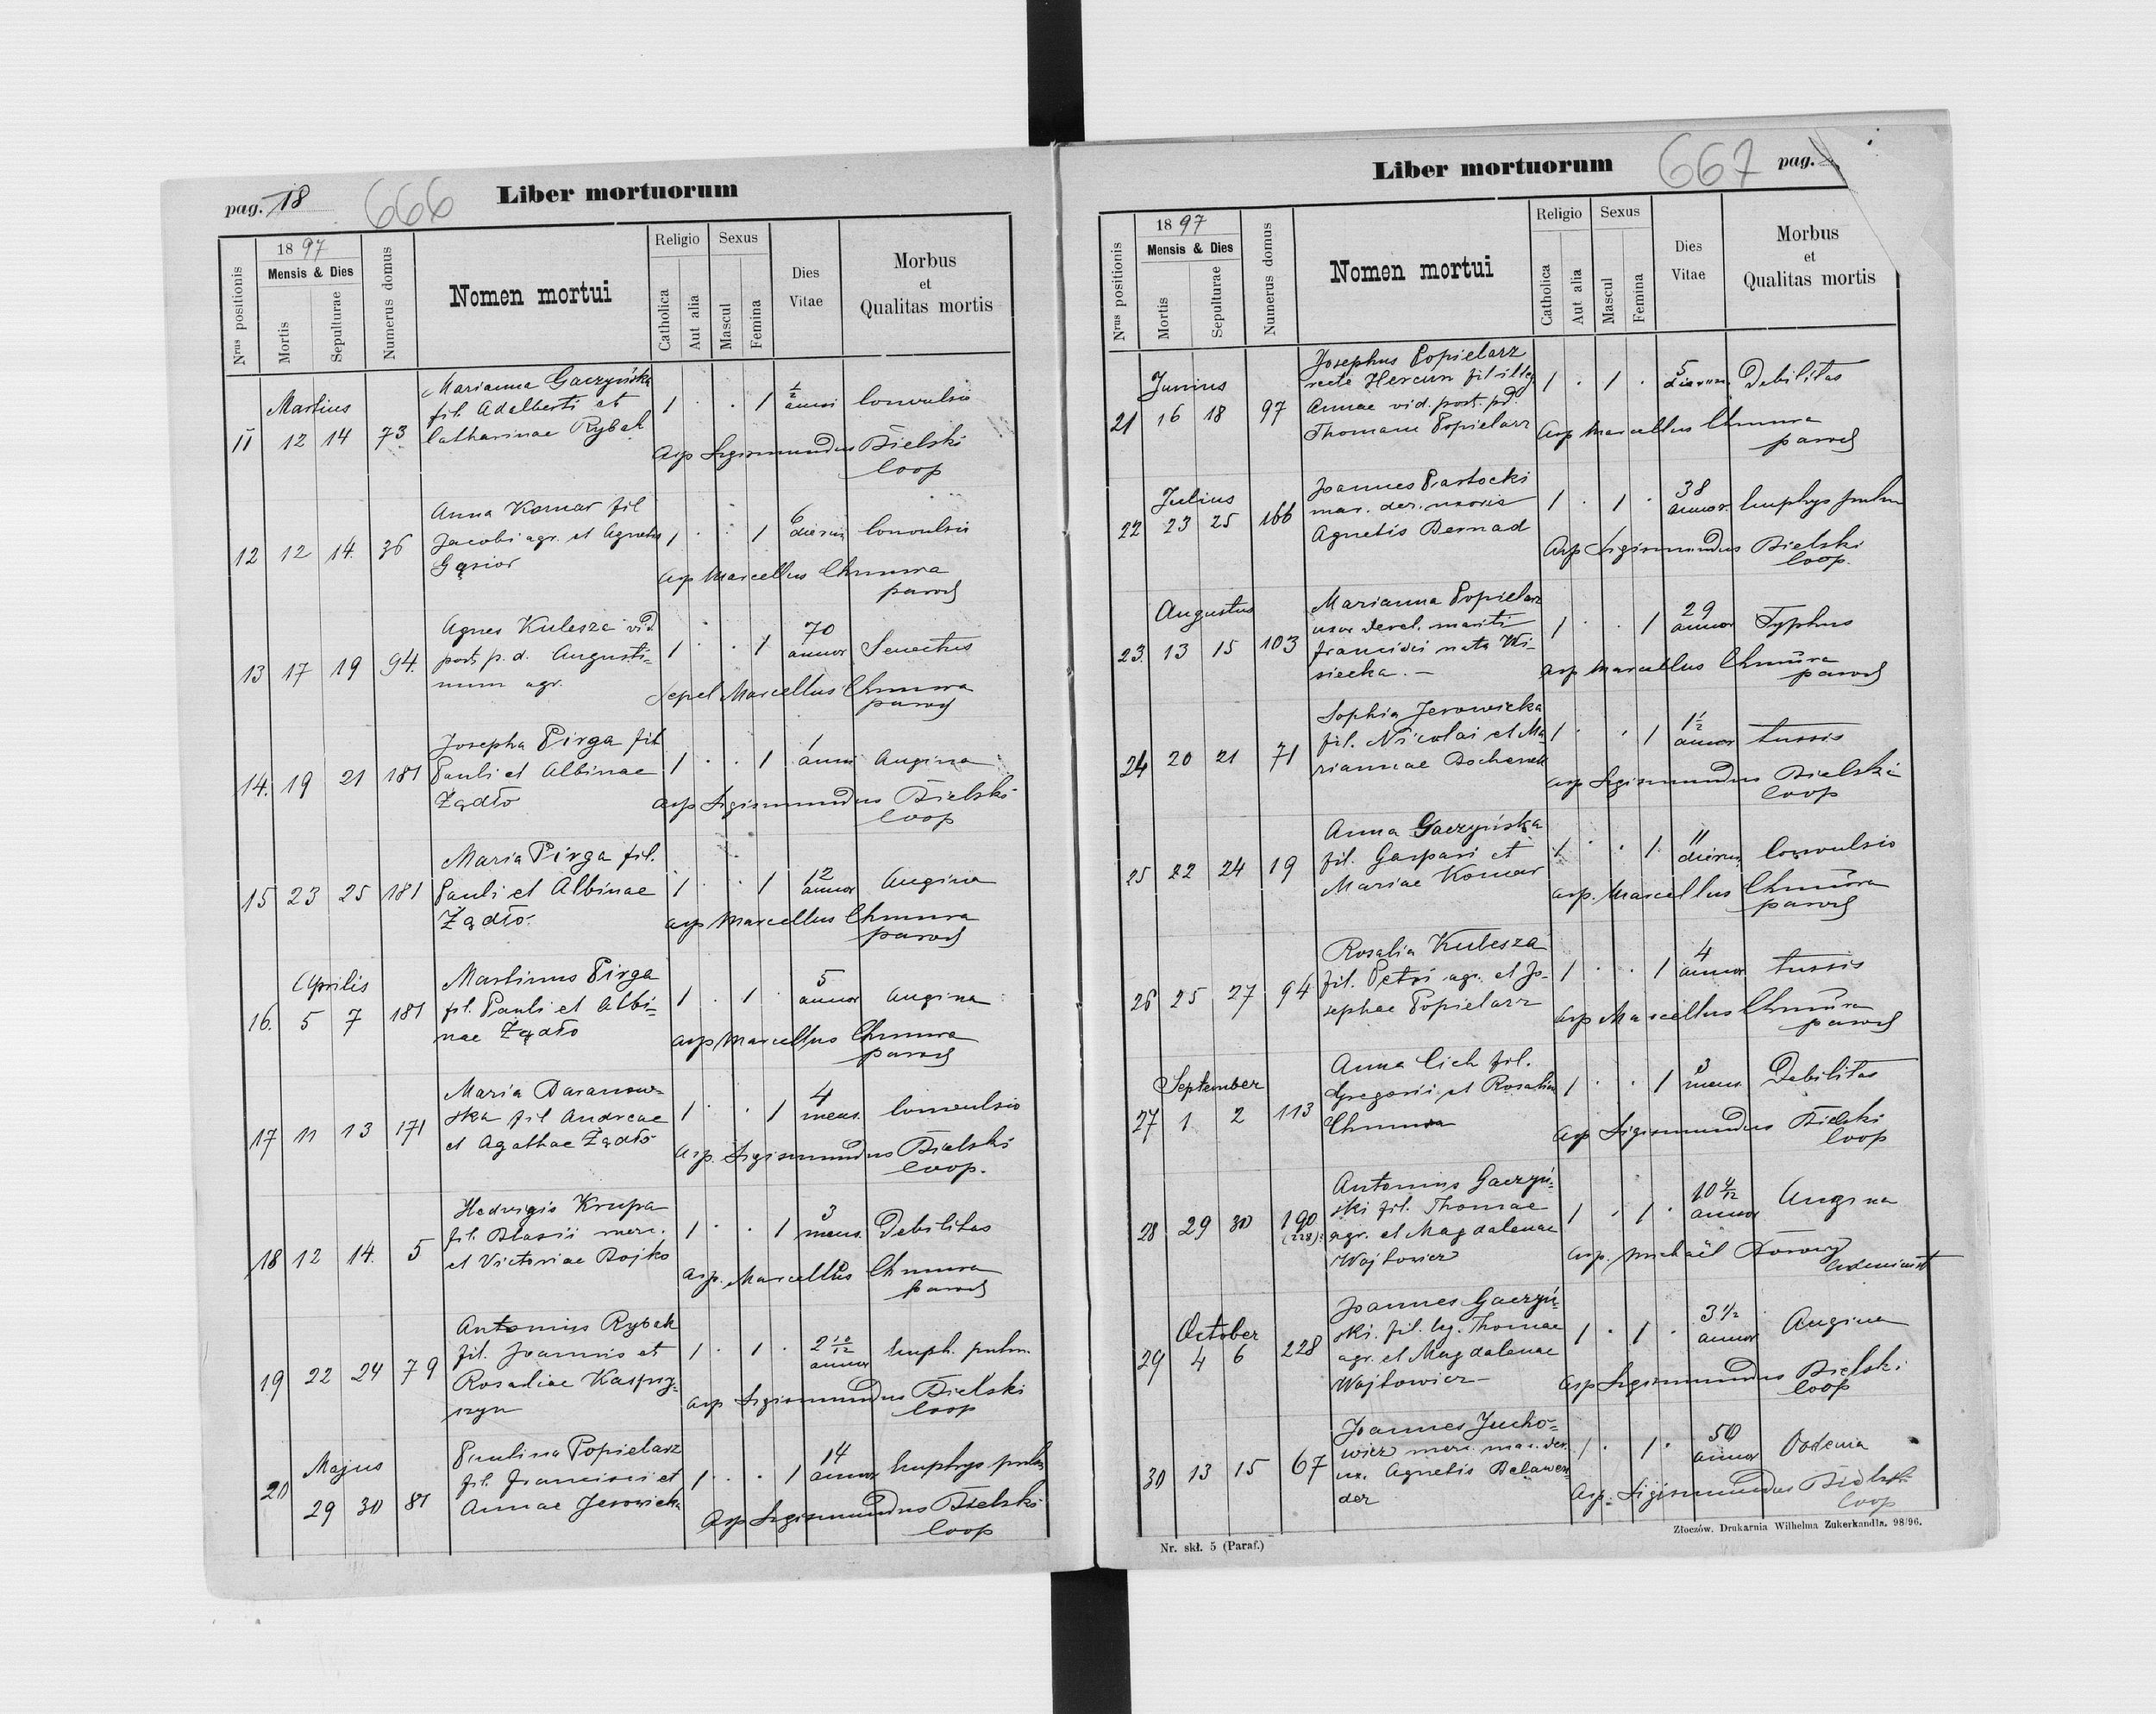 pag. 18 666 Liber mortuorum
Nrus positionis
1897
Mensis & Dies
Mortis
Sepulturae
Numerus domus
Nomen mortui
Religio
Catholica
Aut alia
Sexus
Mascul
Femina
Dies Vitae
Morbus
et
Qualitas mortis
Martius
11 12 14 73
Marianna Gaczyńska
fil Adalberti et
Catharinae Rybak
1 . . 1 ½ anni Convulsio
Asp Sigismundus Bielski
Coop
12 12 14. 36
Anna Komar fil
Jacobi agr. et Agnetis
Gąsior
1 . . 1 6 dierum Convulsio
Asp Marcellus Chmura
paroch
13 17 19 94.
Agnes Kulesza vid.
post p. d. Augusti-
num agr.
1 . . 1 70 annor Senectus
Sepel Marcellus Chmura
paroch
14. 19 21 181
Josepha Pirga fil
Pauli et Albinae
Żądło
1 . . 1 1 anni Angina
Asp Sigismundus Bielski
Coop
15 23 25 181
Maria Pirga fil.
Pauli et Albinae
Żądło.
1 . . 1 12 annor Angina
Asp Marcellus Chmura
paroch
Aprilis
16. 5 7 181
Martinus Pirga
fil. Pauli et Albi-
nae Żądło
1 . 1 . 5 annor Angina
Asp Marcellus Chmura
paroch
17 11 13 171
Maria Baranow-
ska fil Andreae
et Agathae Żądło
1 . . 1 4 mens. Convulsio
Asp. Sigismundus Bielski
Coop.
18 12 14. 5
Hedvigis Krupa
fil. Blasii merc.
et Victoriae Bojko
1 . . 1 3 mens. Debilitas
Asp. Marcellus Chmura
paroch
19 22 24 79
Antonius Rybak
fil. Joannis et
Rosaliae Kasprzy-
szyn
1 . 1 . 2 10/12 annor Emph. pulm.
Asp Sigismundus Bielski
Coop
Majus
20 29 30 81
Paulina Popielarz
fil. Francisci et
Annae Jerowicka
1 . . 1 14 annor Emphys pulm
Asp Sigismundus Bielski
Coop
Liber mortuorum 667 pag.
Nrus positionis
1897
Mensis & Dies
Mortis
Sepulturae
Numerus domus
Nomen mortui
Religio
Catholica
Aut alia
Sexus
Mascul
Femina
Dies Vitae
Morbus
et
Qualitas mortis
Junius
21 16 18 97
Josephus Popielarz
recte Hercun fil illeg
Annae vid. post. pd.
Thomam Popielarz
1 . 1 . 5 dierum Debilitas
Asp Marcellus Chmura
paroch
Julius
22 23 25 166
Joannes Partocki
mar. der. uxoris
Agnetis Bernad
1 . 1 . 38 annor. Emphys pulm
Asp Sigismundus Bielski
Coop.
Augustus
23. 13 15 103
Marianna Popielarz
uxor derel. mariti
Francisci nata Wi-
siecka. –
1 . . 1 29 annor Typhus
Asp Marcellus Chmura
paroch
24 20 21 71
Sophia Jerowicka
fil. Nicolai et Ma-
riannae Bochenek
1 . . 1 1½ annor tussis
Asp Sigismundus Bielski
Coop
25 22 24 19
Anna Gaczyńska
fil. Gaspari et
Mariae Komar
1 . . 1. 11 dierum Convulsio
Asp. Marcellus Chmura
paroch
26 25 27 94
Rosalia Kulesza
fil. Petri agr. et Jo-
sephae Popielarz
1 . . 1 4 annor tussis
Asp Marcellus Chmura
paroch
September
27 1 2 113
Anna Cich fil.
Gregorii et Rosaliae
Chmura
1 . . 1 3 mens. Debilitas
Asp Sigismundus Bielski
Coop
28 29 30 190 (228):
Antonius Gaczyń-
ski fil. Thomae
agr. et Magdalenae
Wojtowicz
1 . 1 . 10 4/12 annor Angina
Asp. Michaël
October
29 4 6 228
Joannes Gaczyń-
ski. fil. leg. Thomae
agr. et Magdalenae
Wojtowicz –
1 . 1 . 3½ annor Angina
Asp Sigismundus Bielski
Coop
30 13 15 67
Joannes Jucho-
wicz merc. mar. der.
ux. Agnetis
der
1 . 1 . 50 annor Oedema
Asp. Sigismundus Bielski
Coop
Nr. skł. 5 (Paraf.)
Złoczów. Drukarnia Wilhelma Zukerkandla. 98/96.